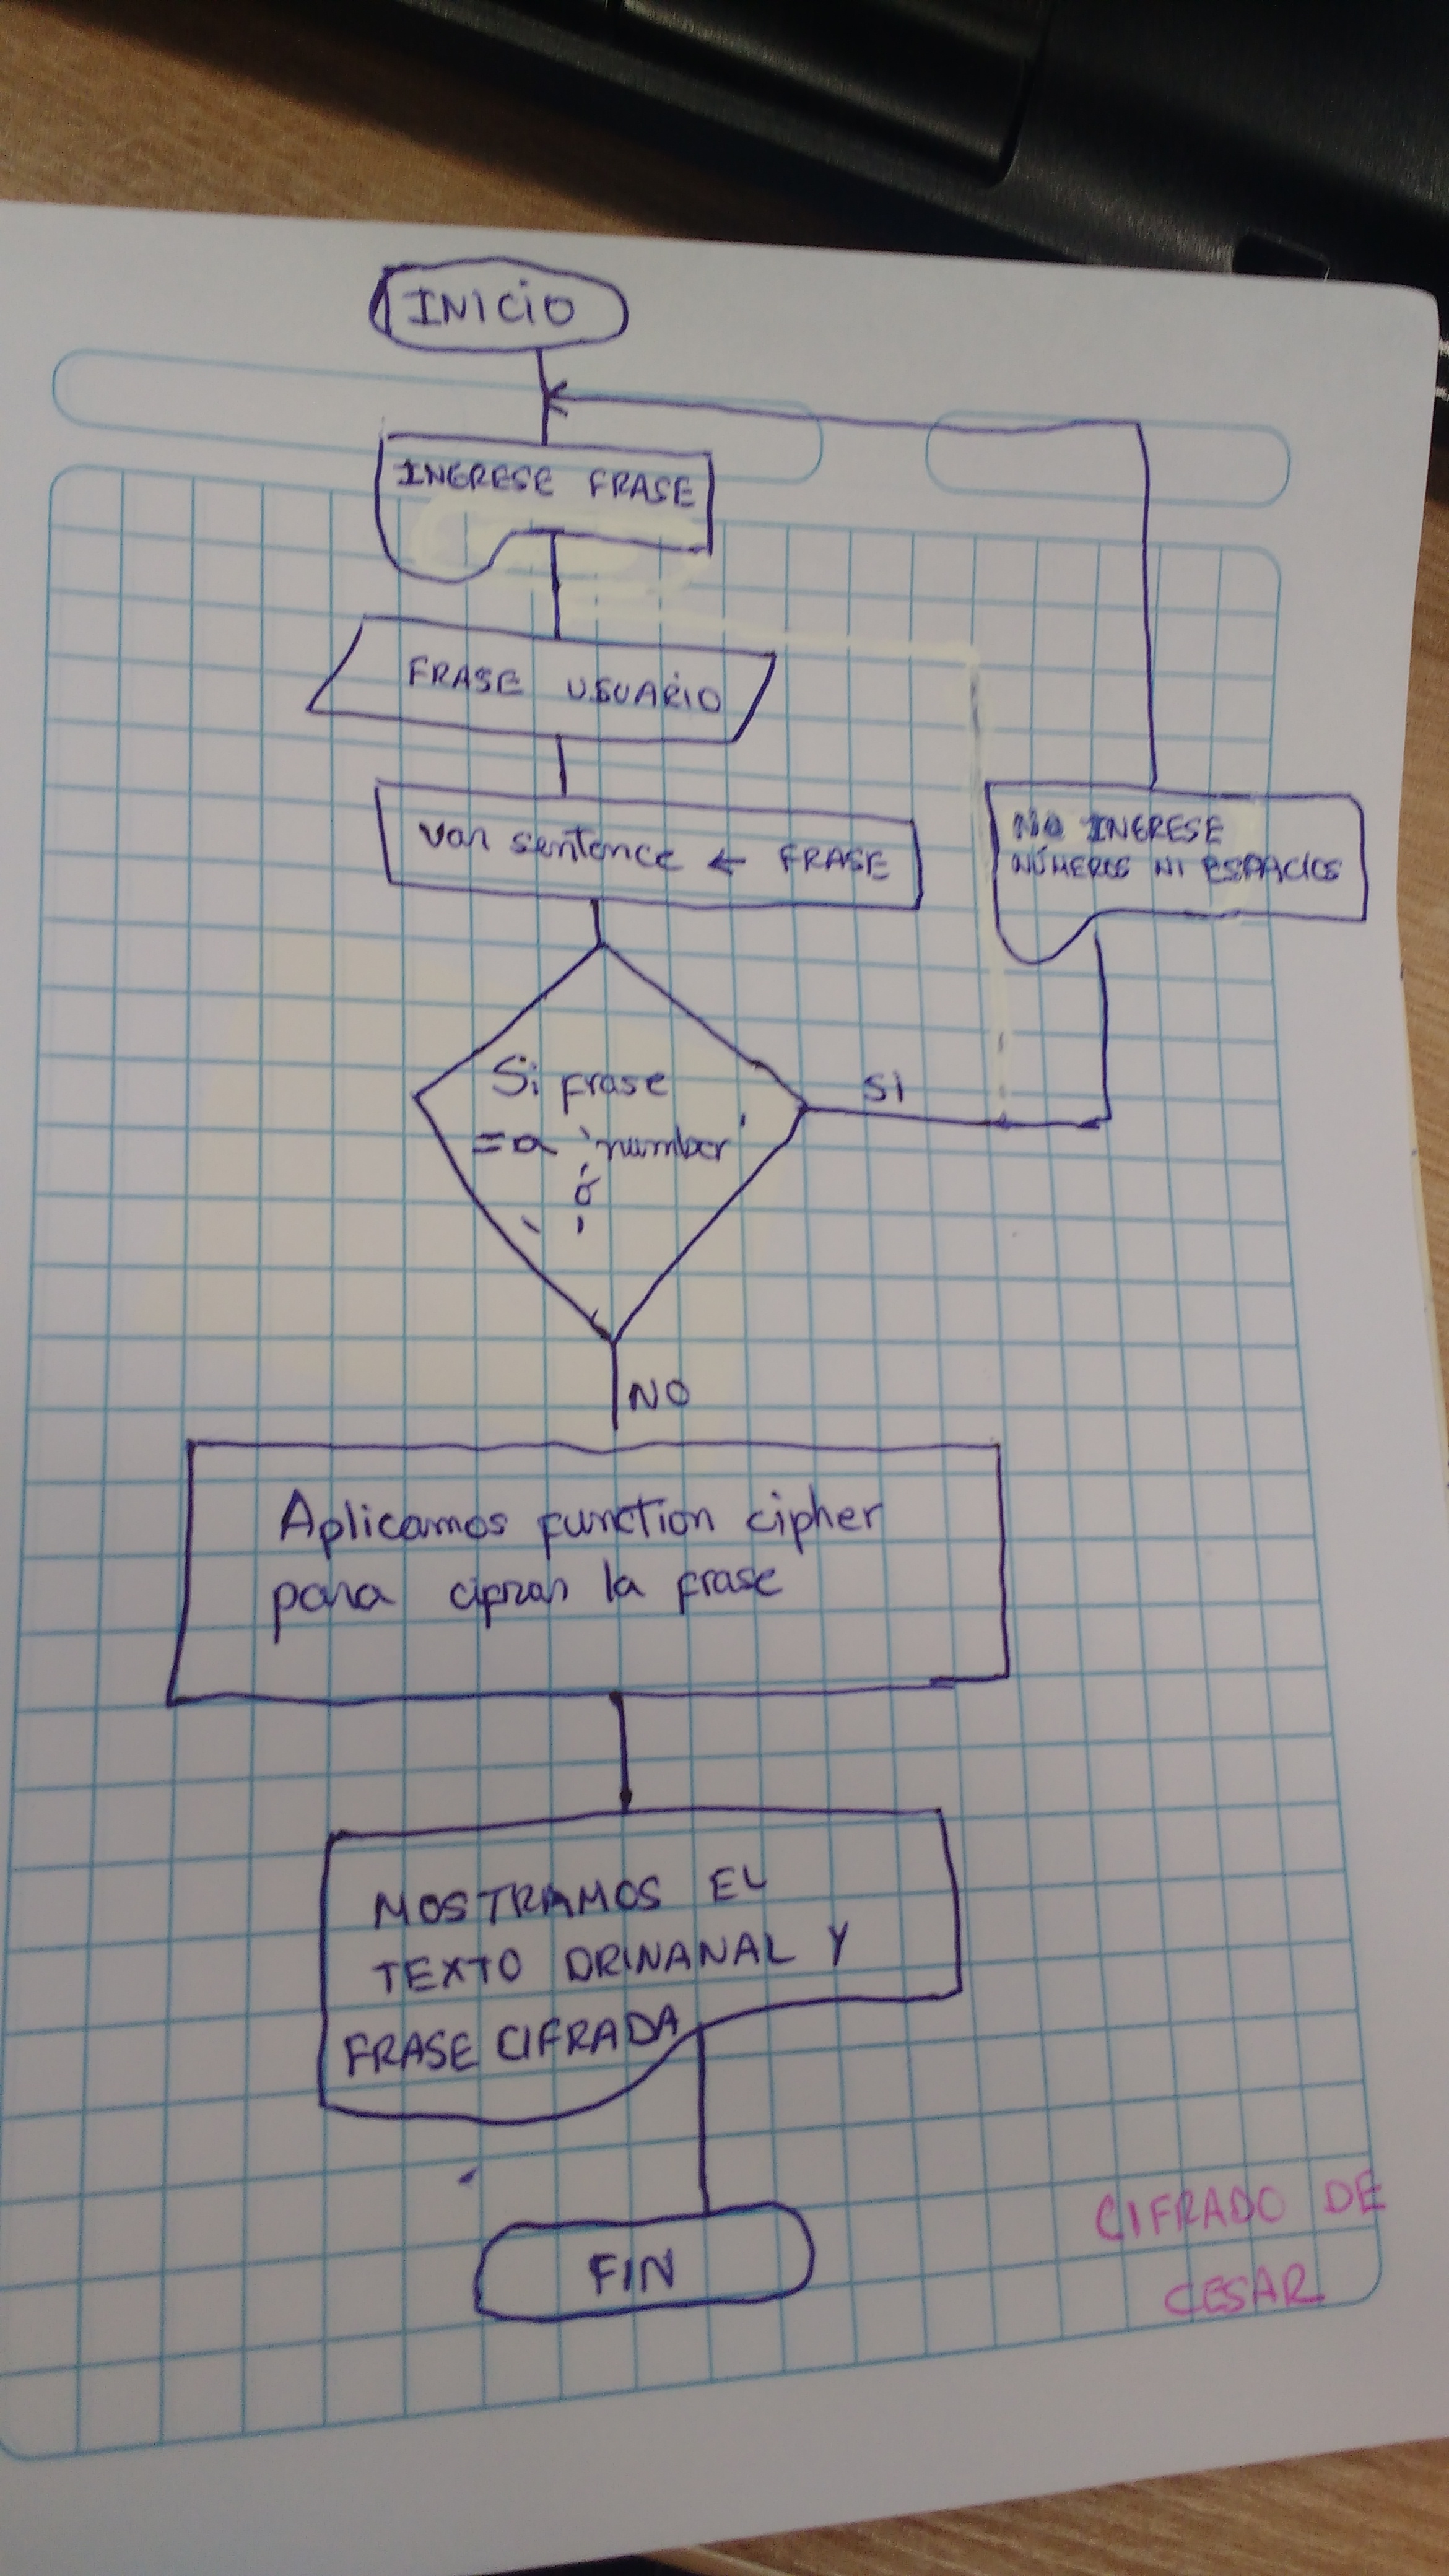 INICIO
INGRESE FRASE
FRASE USUARIO
var sentence ← FRASE
NO INGRESE
NÚMEROS NI ESPACIOS
Si frase
= a 'number'
ó
' '
SI
NO
Aplicamos function cipher
para cifrar la frase
MOSTRAMOS EL
TEXTO ORINANAL Y
FRASE CIFRADA
FIN
CIFRADO DE
CESAR